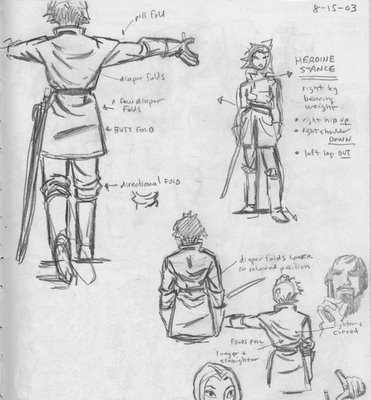 8-15-03
pull fold
diaper folds
HEROINE
STANCE
right leg
bearing
weight
few diaper
folds
right hip up
BUTT FOLD
right shoulder
DOWN
left leg OUT
directional FOLD
diaper folds LOWER
in relaxed position
FOLDS PULL
longer +
straighter
curved